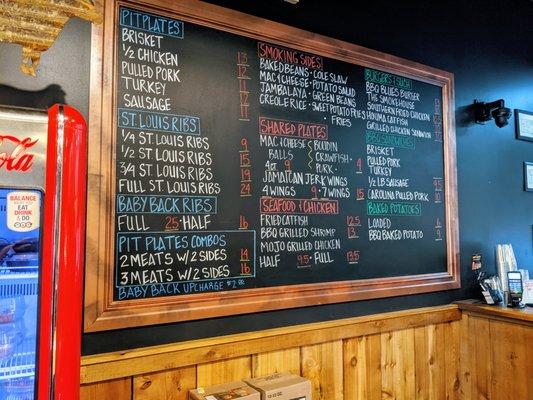 PIT PLATES
BRISKET 13
1/2 CHICKEN 12
PULLED PORK
TURKEY
SAUSAGE
ST. LOUIS RIBS
1/4 ST. LOUIS RIBS 9
1/2 ST. LOUIS RIBS 15
3/4 ST. LOUIS RIBS 19
FULL ST. LOUIS RIBS 24
BABY BACK RIBS
FULL 25 · HALF 16
PIT PLATES COMBOS
2 MEATS W/2 SIDES 14
3 MEATS W/2 SIDES 16
BABY BACK UPCHARGE $2.00
SMOKING SIDES
BAKED BEANS · COLE SLAW
MAC & CHEESE · POTATO SALAD
JAMBALAYA · GREEN BEANS
CREOLE RICE · SWEET POTATO FRIES
· FRIES
SHARED PLATES
MAC & CHEESE BALLS 9
BOUDIN
CRAWFISH
PORK
JAMAICAN JERK WINGS
4 WINGS 9 · 7 WINGS 15
SEAFOOD & CHICKEN
FRIED CATFISH 12.5
BBQ GRILLED SHRIMP 13
MOJO GRILLED CHICKEN
HALF 9.5 · FULL 13.5
BBQ BLUES BURGER
THE SMOKEHOUSE
SOUTHERN FRIED CHICKEN
HOUMA CATFISH
GRILLED CHICKEN SANDWICH
BBQ SANDWICHES
BRISKET
PULLED PORK
TURKEY
1/2 LB SAUSAGE
CAROLINA PULLED PORK
BAKED POTATOES
LOADED
BBQ BAKED POTATO 9
Coca
BALANCE
WHAT YOU
EAT
DRINK
& DO